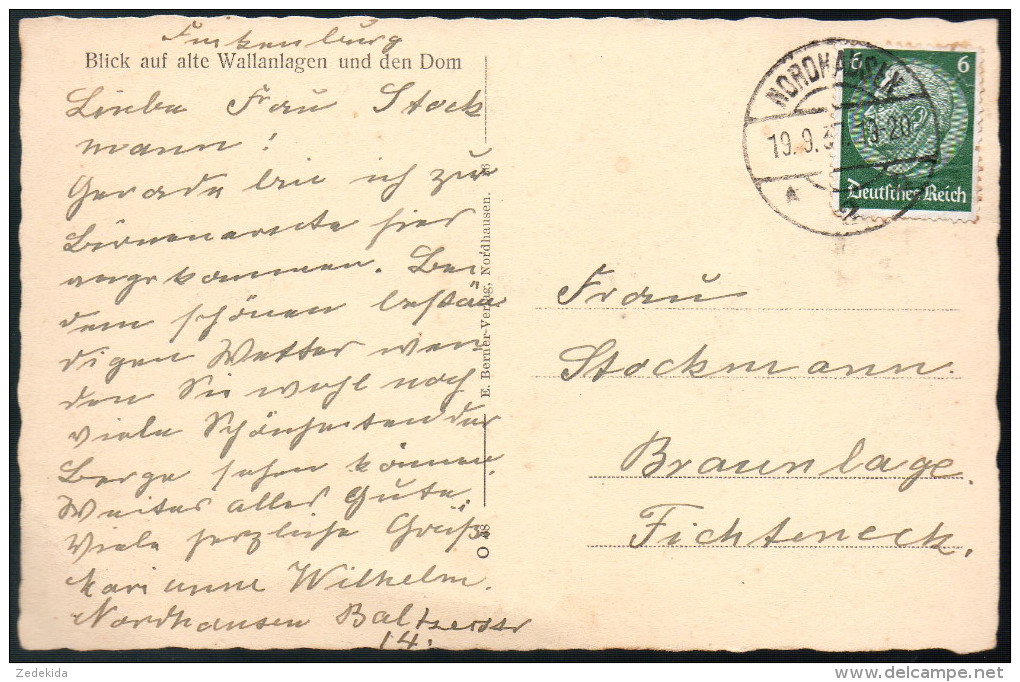 Finkenburg
Blick auf alte Wallanlagen und den Dom
Liebe Frau Stock
mann!
Gerade bin ich zur
Birnenernte hier
angekommen. Bei
dem schönen bestän
digen Wetter wer
den Sie wohl noch
viele Schönheiten der
Berge sehen können.
Weiter alles Gute.
Viele herzliche Grüße
Marianne Wilhelm.
Nordhausen Baltzerstr
14.
E. Berner-Verlag, Nordhausen.
O 38
NORDHAUSEN
19.9.3 19-20
* 2
6 6
Deutsches Reich
Frau
Stockmann.
Braunlage.
Fichteneck.
Zedekida
www.delcampe.net